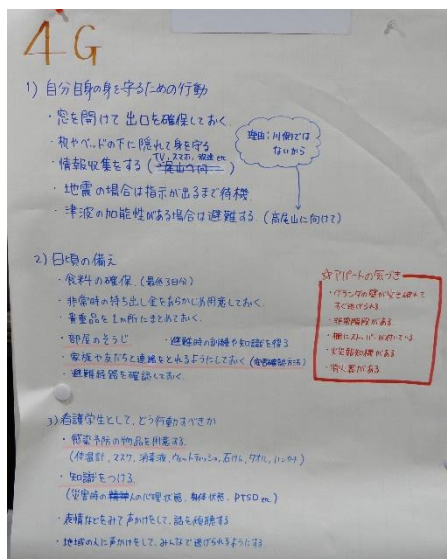 4G
1) 自分自身の身を守るための行動
・窓を開けて出口を確保しておく.
・机やベッドの下に隠れて身を守る
・情報収集をする (TV、スマホ、放送 etc
・地震の場合は指示が出るまで待機.
・津波の加能性がある場合は避難する. (高尾山に向けて)
理由:川側では
ないから
2) 日頃の備え
・食料の確保. (最低3日分)
・非常時の持ち出し金をあらかじめ用意しておく.
・貴重品を1ヵ所にまとめておく.
・部屋のそうじ ・避難時の訓練や知識を得る
・家族や友だちと連絡をとれるようにしておく (安否確認方法)
・避難経路を確認しておく.
☆アパートの気づき
・ベランダの壁が突き破れて
すぐ逃げられる
・非常階段がある.
・棚にストッパーが付いている
・火災報知機がある
・消火器がある
3) 看護学生として、どう行動すべきか
・感染予防の物品を用意する.
(体温計、マスク、消毒液、ウェットティッシュ、石けん、タオル、ハンカチ)
・知識をつける.
(災害時の人の心理状態、身体状態、PTSD etc)
・表情などをみて声かけをして、話を傾聴する
・地域の人に声かけをして、みんなで逃げられるようにする